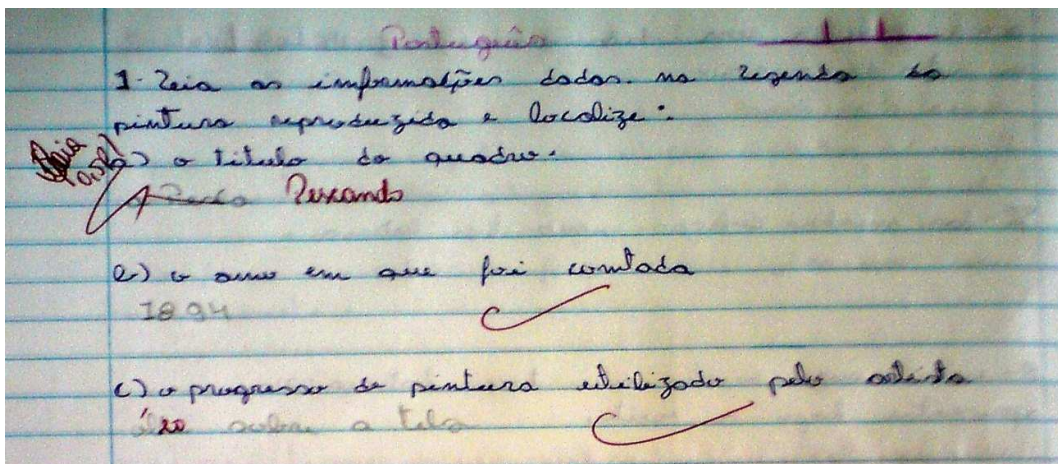 Português
1- Leia as informações dadas. na legenda da
pintura reproduzida e localize:
a) o titulo do quadro.
Pescando
b) o ano em que foi contada
1894
c) o progresso de pintura utilizado pelo artista
óleo sobre a tela